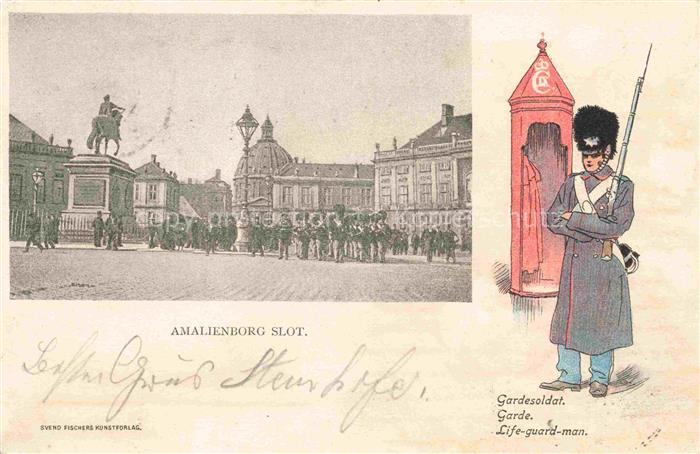 AMALIENBORG SLOT.
Bester Gruss
SVEND FISCHERS KUNSTFORLAG.
Gardesoldat.
Garde.
Life-guard-man.